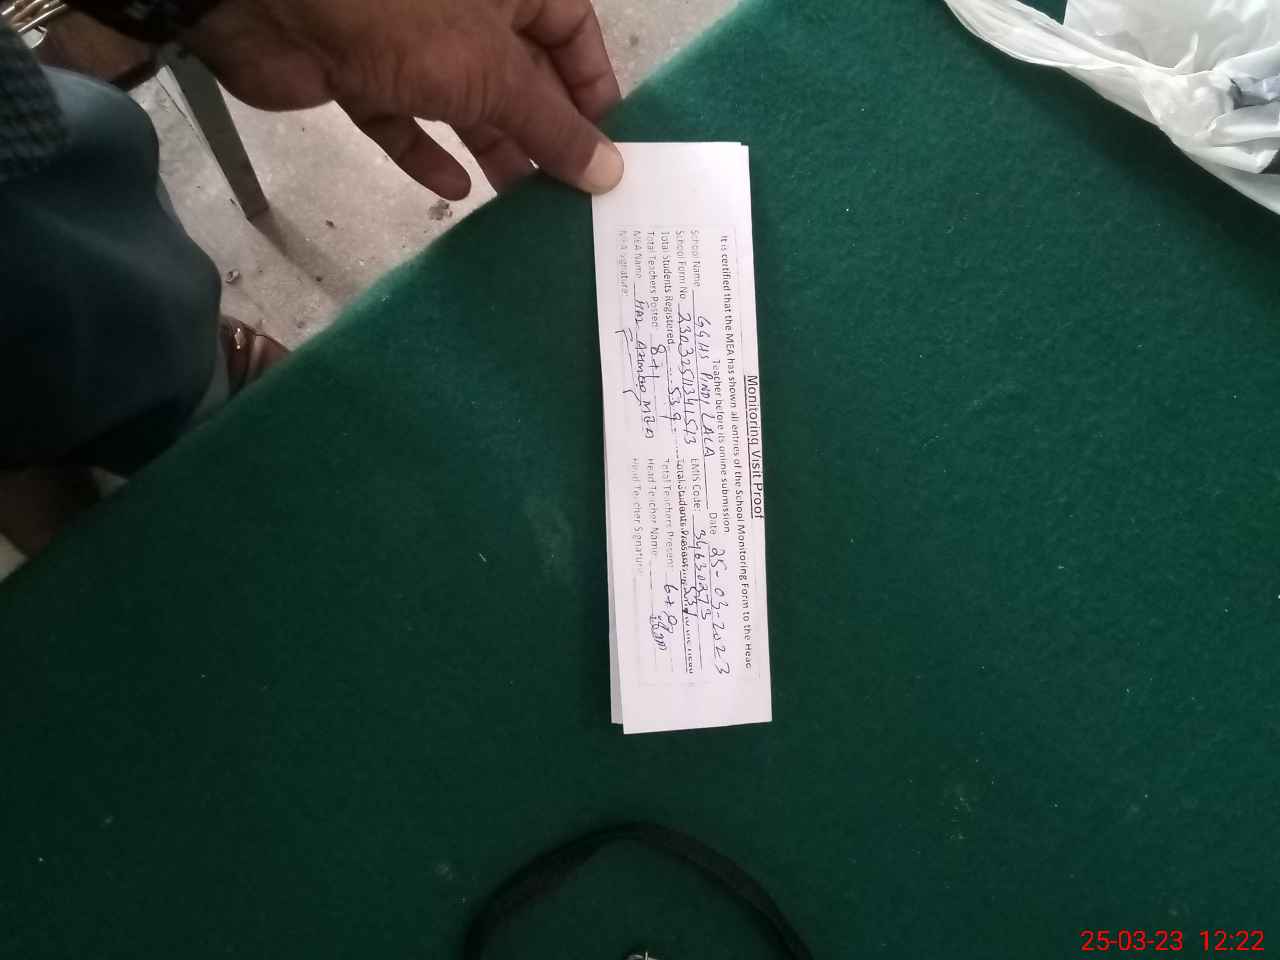 Monitoring Visit Proof
It is certified that the MEA has shown all entries of the School Monitoring Form to the Head
Teacher before its online submission
Date 25-03-2023
School Name GGHS PINDI LALA EMIS Code: 34630273
School Form No 2303251134L513 Total Students Present 531
Total Students Registered 539 Total Teachers Present 6+
Total Teachers Posted: 8+1 Head Teacher Name
MEA Name AHMAD MEA Head Teacher Signature
MEA Signature:
25-03-23 12:22